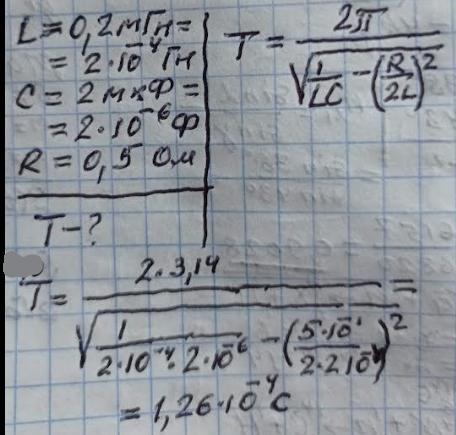 L = 0,2 мГн =
= 2·10⁻⁴ Гн
C = 2 мкФ =
= 2·10⁻⁶ Ф
R = 0,5 Ом
T - ?
T = 2π / √(1/LC - (R/2L)²)
T = 2·3,14 / √(1/(2·10⁻⁴·2·10⁻⁶) - (5·10⁻¹/(2·2·10⁻⁴))²) =
= 1,26·10⁻⁴ с